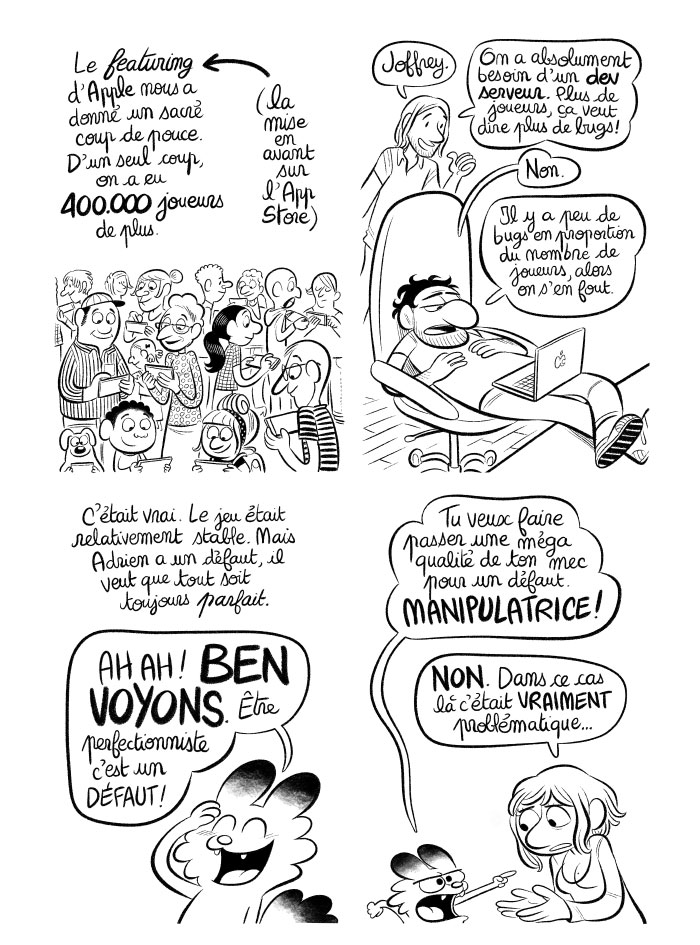 Le featuring
d'Apple nous a
donné un sacré
coup de pouce.
D'un seul coup,
on a eu
400.000 joueurs
de plus.
(la
mise
en
avant
sur
l'App
Store)
Joffrey.
On a absolument
besoin d'un dev
serveur. Plus de
joueurs, ça veut
dire plus de bugs!
Non.
Il y a peu de
bugs en proportion
du nombre de
joueurs, alors
on s'en fout.
C'était vrai. Le jeu était
relativement stable. Mais
Adrien a un défaut, il
veut que tout soit
toujours parfait.
AH AH! BEN
VOYONS. Être
perfectionniste
c'est un
DÉFAUT!
Tu veux faire
passer une méga
qualité de ton mec
pour un défaut.
MANIPULATRICE!
NON. Dans ce cas
là c'était VRAIMENT
problématique...